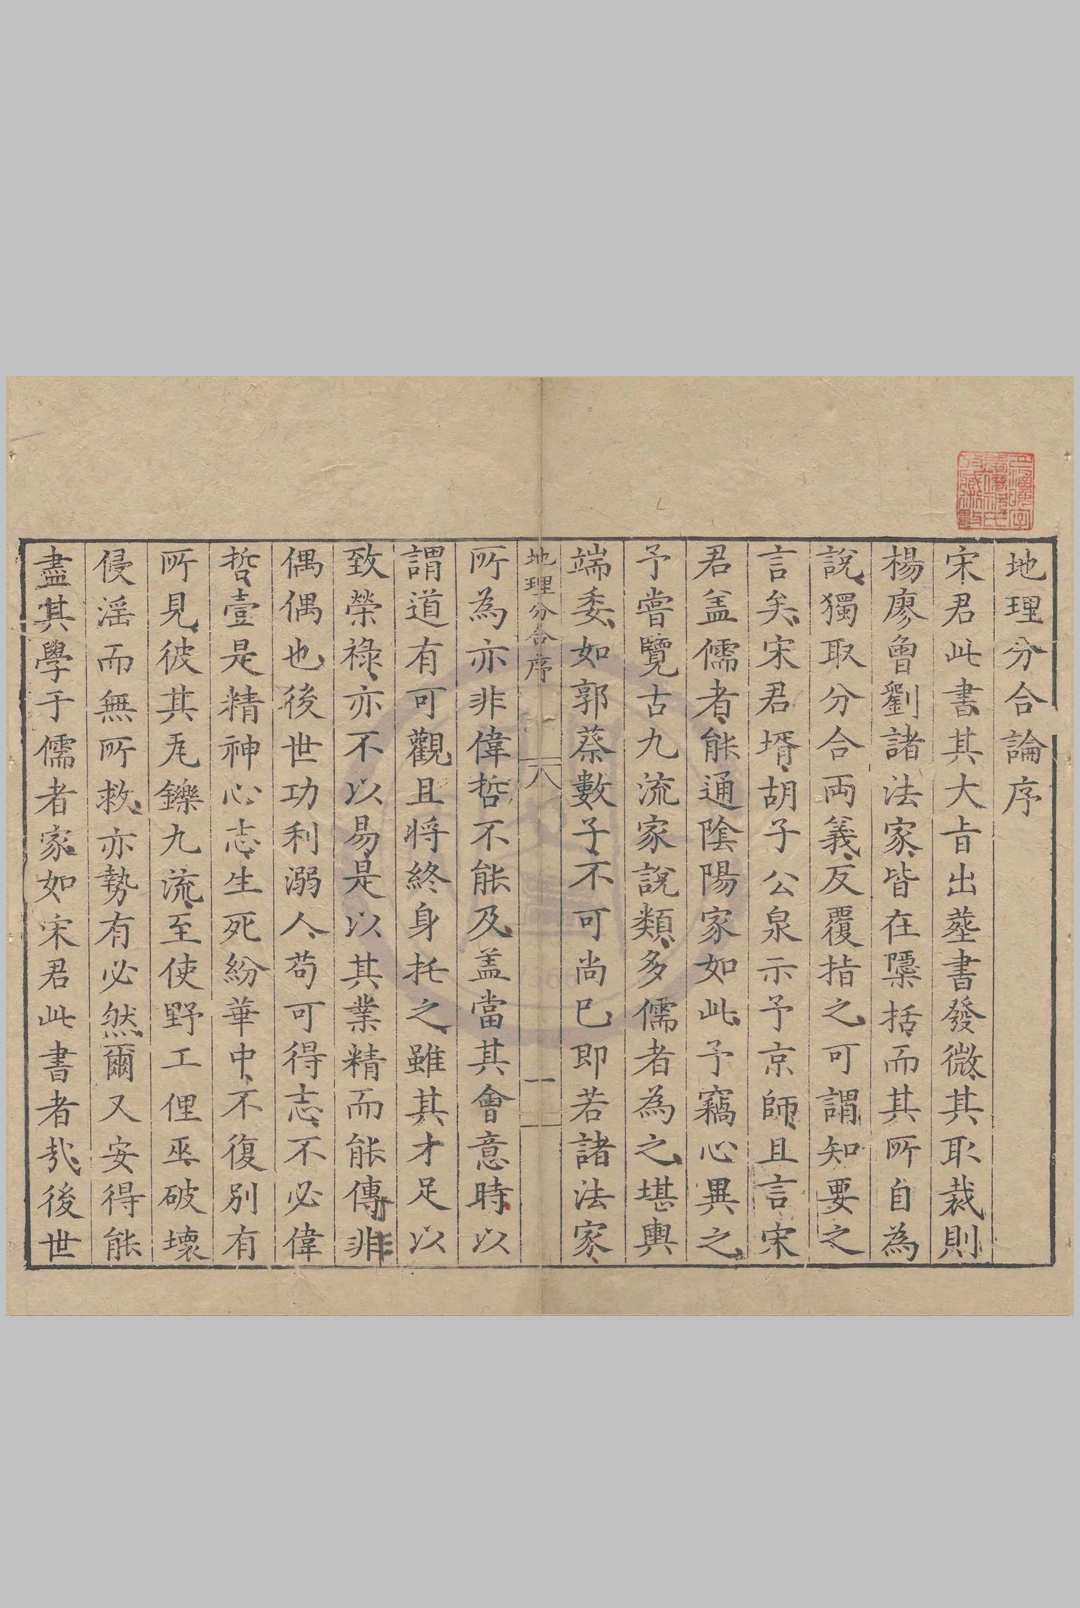 地理分合論序
宋君此書其大旨出塟書發微其取裁則
楊廖曾劉諸法家皆在檃括而其所自為
說獨取分合両義反覆指之可謂知要之
言矣宋君壻胡子公泉示予京師且言宋
君盖儒者能通陰陽家如此予竊心異之
予嘗覽古九流家說類多儒者為之堪輿
端委如郭蔡數子不可尚已即若諸法家
地理分合序 一
所為亦非偉哲不能及盖當其會意時以
謂道有可觀且將終身托之雖其才足以
致榮祿亦不以易是以其業精而能傳非
偶偶也後世功利溺人苟可得志不必偉
哲壹是精神心志生死紛華中不復別有
所見彼其視鑠九流至使野工俚巫破壞
侵淫而無所救亦勢有必然爾又安得能
盡其學于儒者家如宋君此書者哉後世